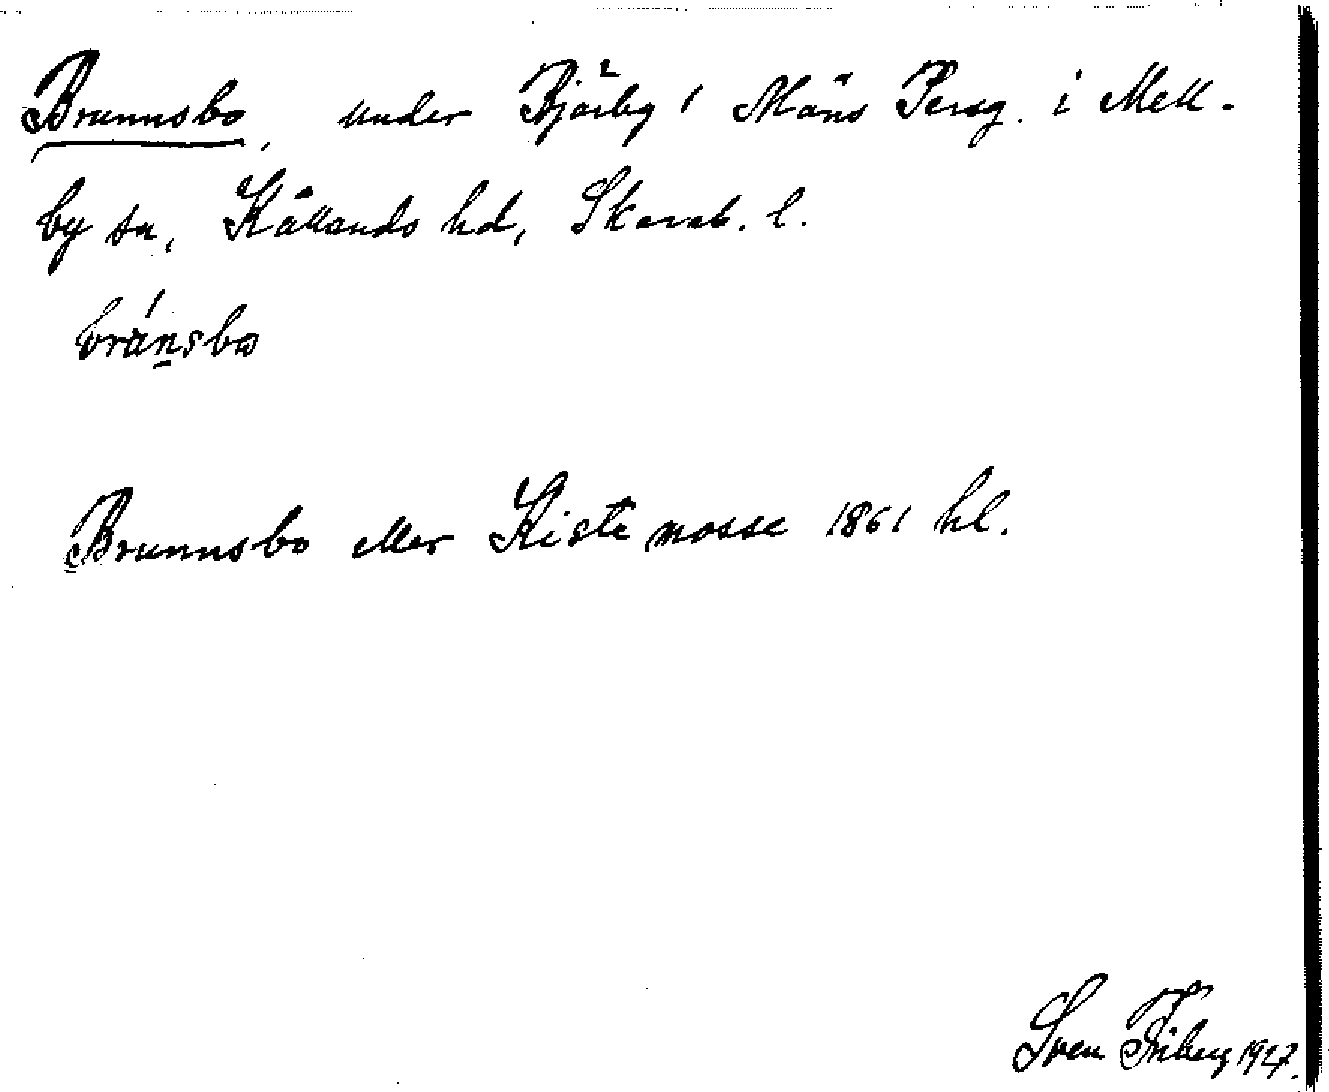 Brunnsbo, under Björby 1 Måns Persg. i Mell-
by sn, Kållands hd, Skarab. l.
bränsbo
Brunnsbo eller Kistemosse 1861 hl.
Sven Friberg 1927.